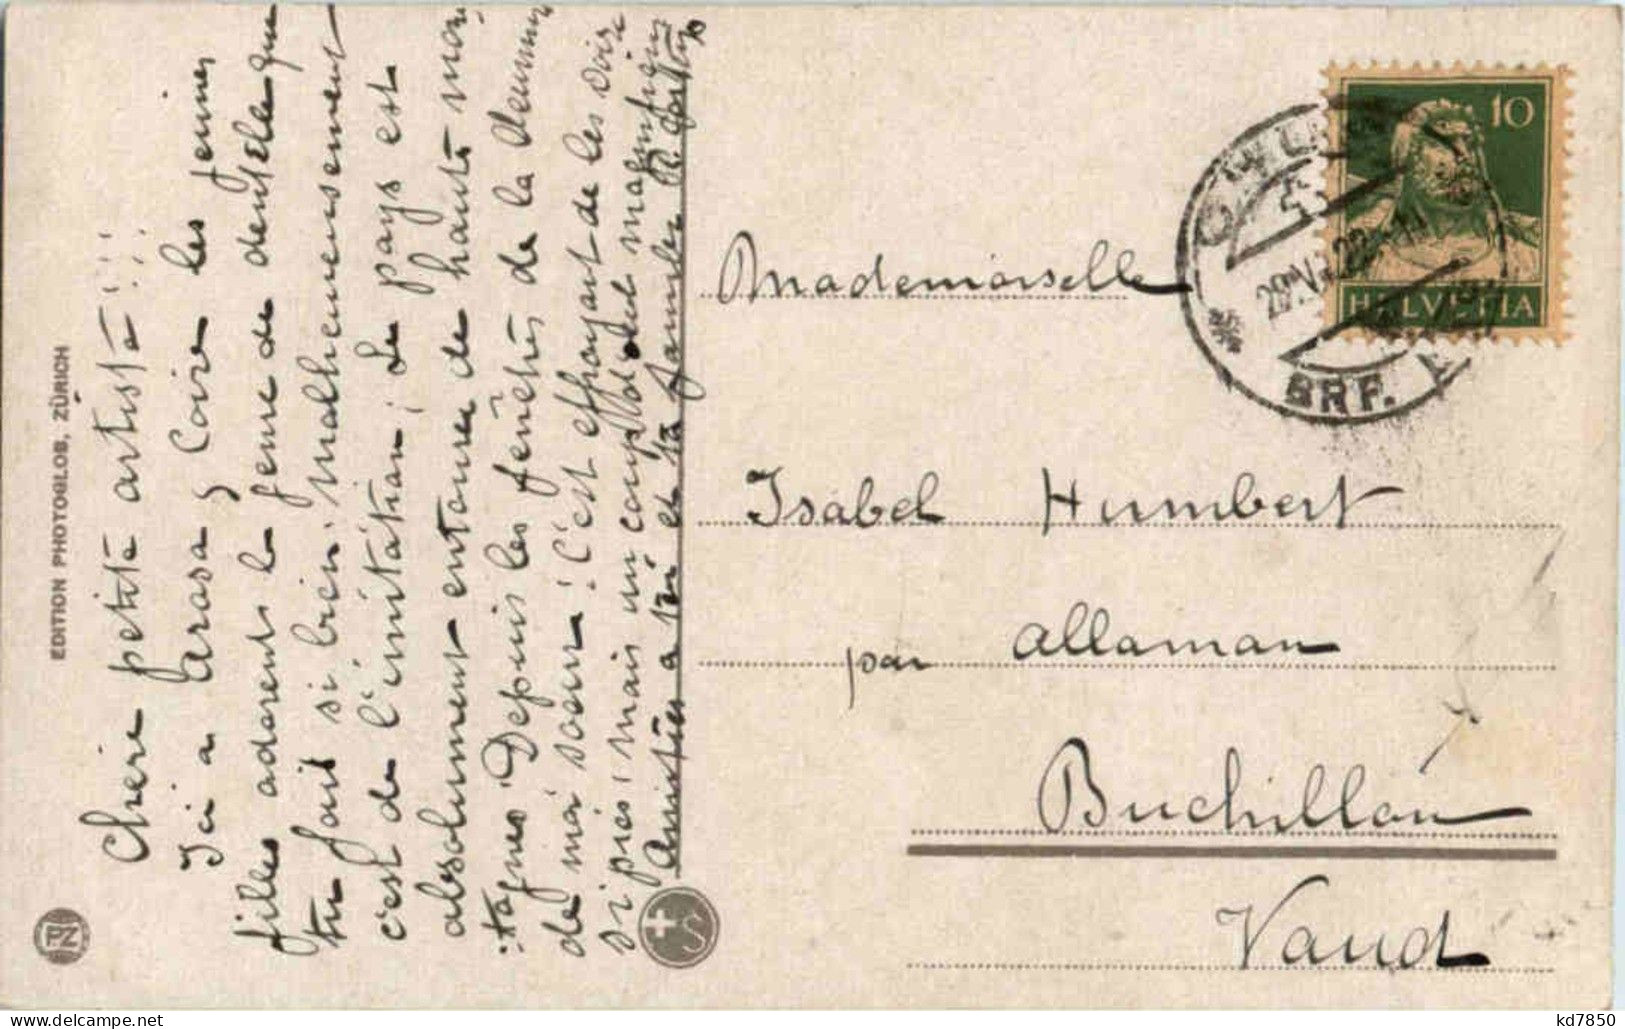 Chère petite artiste!!!
Ici a Arosa & Coire les jeunes
filles adorent le genre de dentelle que
tu fais si bien, malheureusement
c'est de l'imitation. Le pays est
absolument entouré de hautes mon
tagnes. Depuis les fenêtres de la demeure
de ma soeur. C'est effrayant de les voir
si près, mais un coup d'oeil magnifique
Amitiés a toi et ta famille
EDITION PHOTOGLOB, ZÜRICH
PZ
10
HELVETIA
BRF.
Mademoiselle
Isabel Humbert
par Allaman
Buchillon
Vaud
kd7850